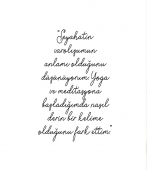 "Seyahatin
varoluşumun
anlamı olduğunu
düşünüyorum. Yoga
ve meditasyona
başladığımda nasıl
derin bir kelime
olduğunu fark ettim."